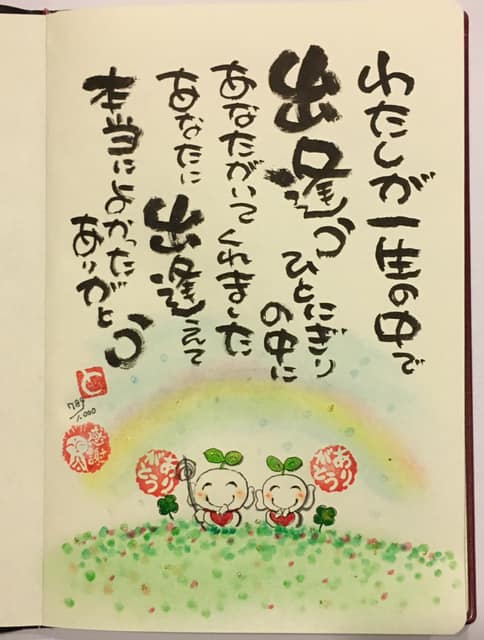 わたしが一生の中で
出逢う
ひとにぎり
の中に
あなたがいてくれました
あなたに
出逢えて
本当によかった
ありがとう
789/1000
感謝
ありがとう
ありがとう